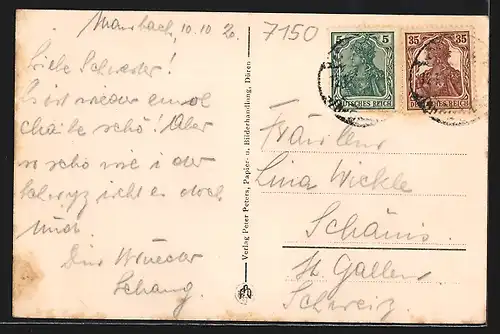 Mausbach, 10.10 20.
7150
Liebe Schwester!
Es ist wieder einol
schö! Aber
so schö wie i der
Schwyz isch es doch
nüd.
Din Brueder
Schang.
Verlag Peter Peters, Papier- u. Bilderhandlung, Düren
5 5
DEUTSCHES REICH
35 35
DEUTSCHES REICH
Fräulein
Lina Wickle
Schänis.
St. Gallen
Schweiz.